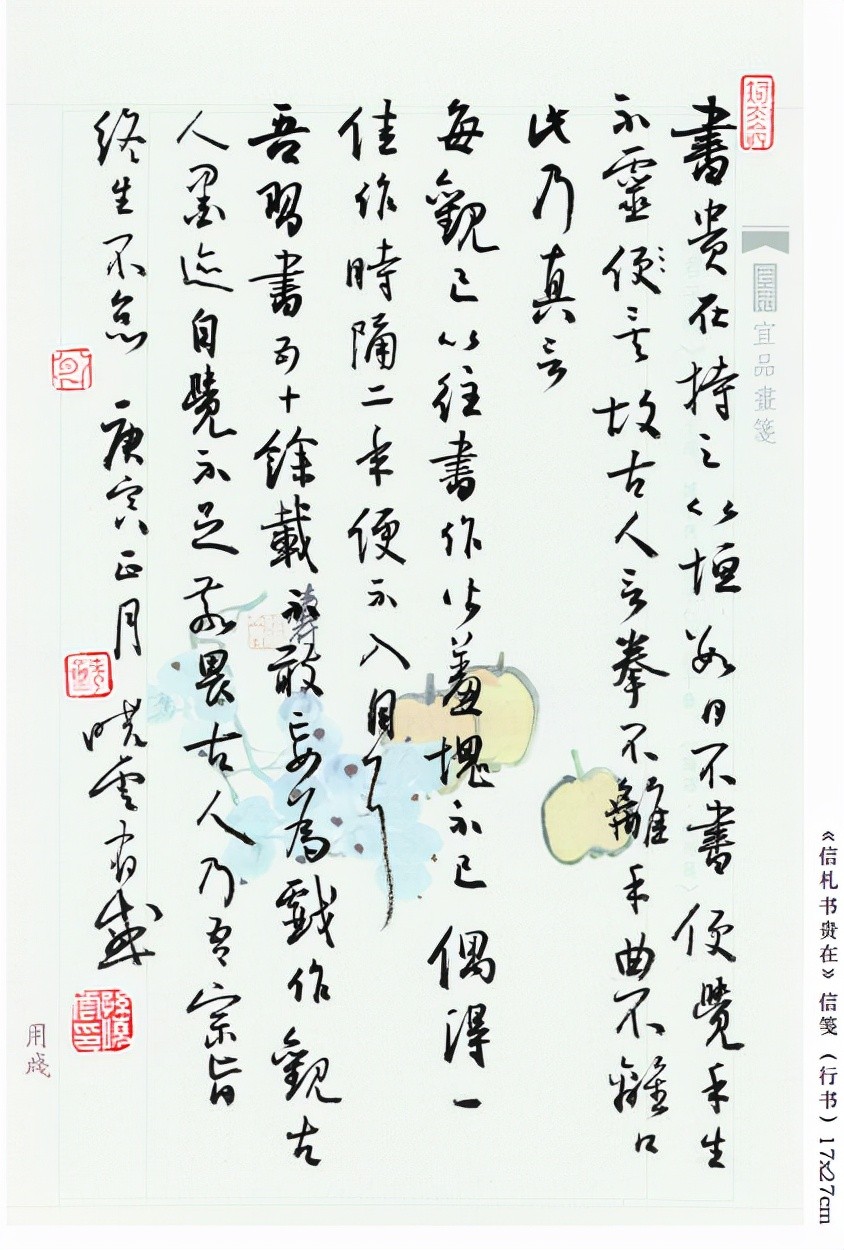 書貴在持之以恒數日不書便覺手生
不靈便矣故古人言拳不離手曲不離口
此乃真言
每觀己以往書作皆羞愧不已偶得一
佳作時隔二年便不入目
吾習書五十餘載不敢妄為戲作觀古
人墨迹自覺不足敬畏古人乃吾宗旨
終生不怠 庚寅正月 曉雲有感
宜品畫箋
用箋
《信札书贵在》信笺（行书）17×27cm